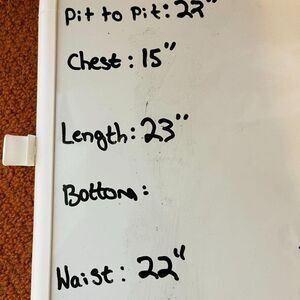 Pit to Pit: 22"
Chest: 15"
Length: 23"
Bottom:
Waist: 22"